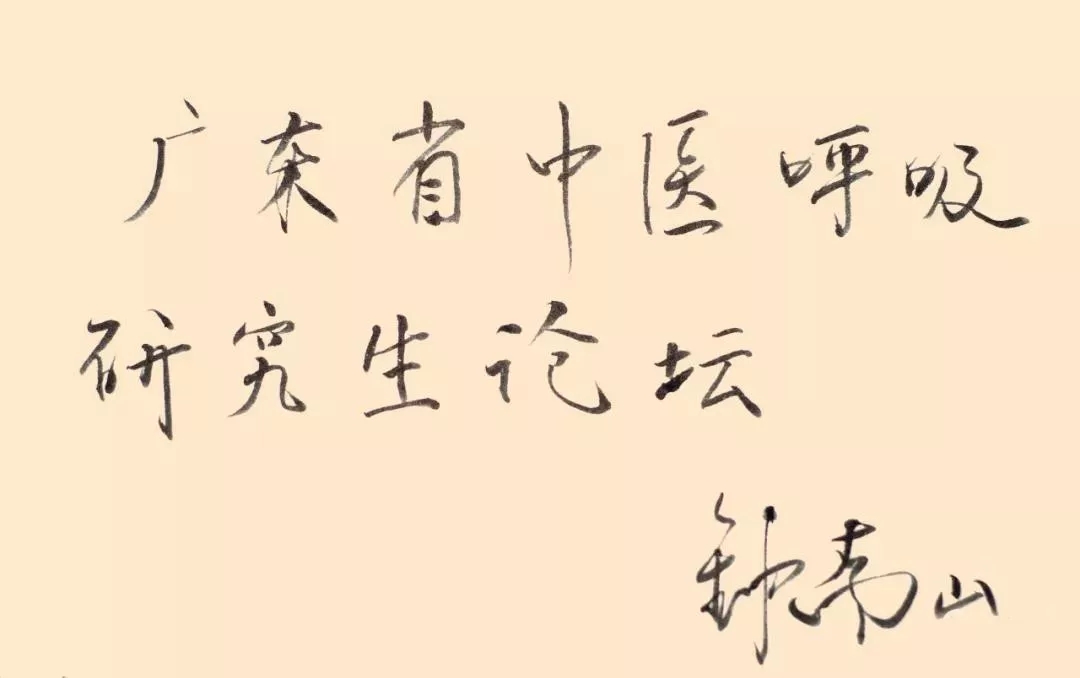 广东省中医呼吸
研究生论坛
钟南山